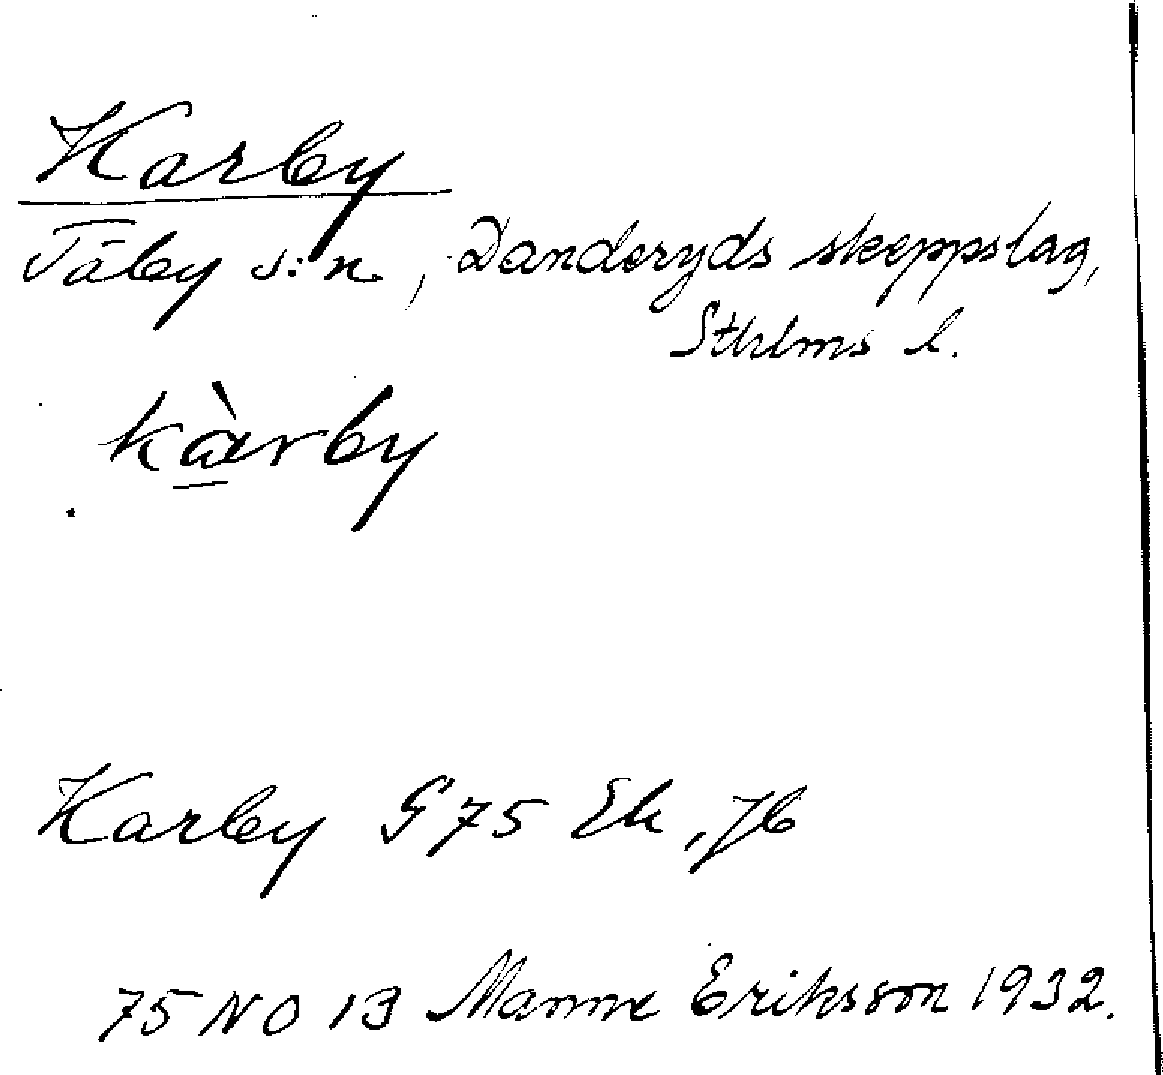 Karby
Täby s:n, Danderyds skeppslag,
Sthlms l.
kàrby
Karby G75 Ek, Jb
75 NO 13 Manne Eriksson 1932.